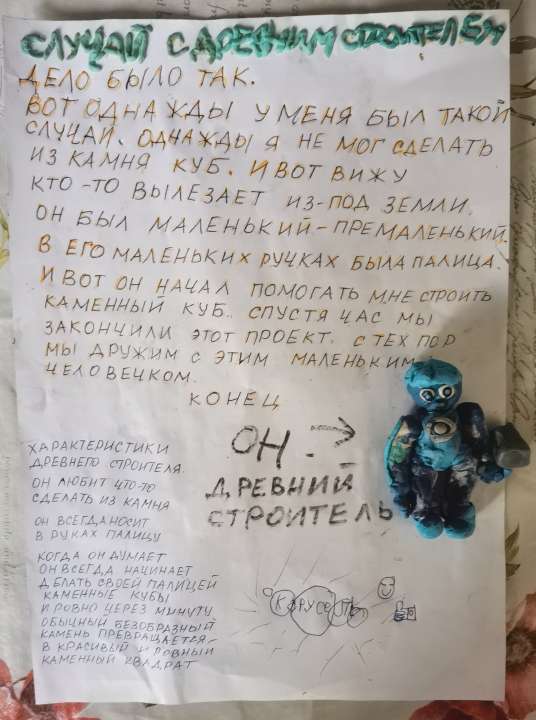 СЛУЧАЙ С ДРЕВНИМ СТРОИТЕЛЕМ
ДЕЛО БЫЛО ТАК.
ВОТ ОДНАЖДЫ У МЕНЯ БЫЛ ТАКОЙ
СЛУЧАЙ. ОДНАЖДЫ Я НЕ МОГ СДЕЛАТЬ
ИЗ КАМНЯ КУБ. И ВОТ ВИЖУ
КТО-ТО ВЫЛЕЗАЕТ ИЗ-ПОД ЗЕМЛИ.
ОН БЫЛ МАЛЕНЬКИЙ-ПРЕМАЛЕНЬКИЙ.
В ЕГО МАЛЕНЬКИХ РУЧКАХ БЫЛА ПАЛИЦА.
И ВОТ ОН НАЧАЛ ПОМОГАТЬ МНЕ СТРОИТЬ
КАМЕННЫЙ КУБ. СПУСТЯ ЧАС МЫ
ЗАКОНЧИЛИ ЭТОТ ПРОЕКТ. С ТЕХ ПОР
МЫ ДРУЖИМ С ЭТИМ МАЛЕНЬКИМ
ЧЕЛОВЕЧКОМ.
КОНЕЦ
ОН.
ДРЕВНИЙ
СТРОИТЕЛЬ
ХАРАКТЕРИСТИКИ
ДРЕВНЕГО СТРОИТЕЛЯ.
ОН ЛЮБИТ ЧТО-ТО
СДЕЛАТЬ ИЗ КАМНЯ
ОН ВСЕГДА НОСИТ
В РУКАХ ПАЛИЦУ
КОГДА ОН ДУМАЕТ
ОН ВСЕГДА НАЧИНАЕТ
ДЕЛАТЬ СВОЕЙ ПАЛИЦЕЙ
КАМЕННЫЕ КУБЫ
И РОВНО ЧЕРЕЗ МИНУТУ
ОБЫЧНЫЙ БЕЗОБРАЗНЫЙ
КАМЕНЬ ПРЕВРАЩАЕТСЯ
В КРАСИВЫЙ И РОВНЫЙ
КАМЕННЫЙ КВАДРАТ